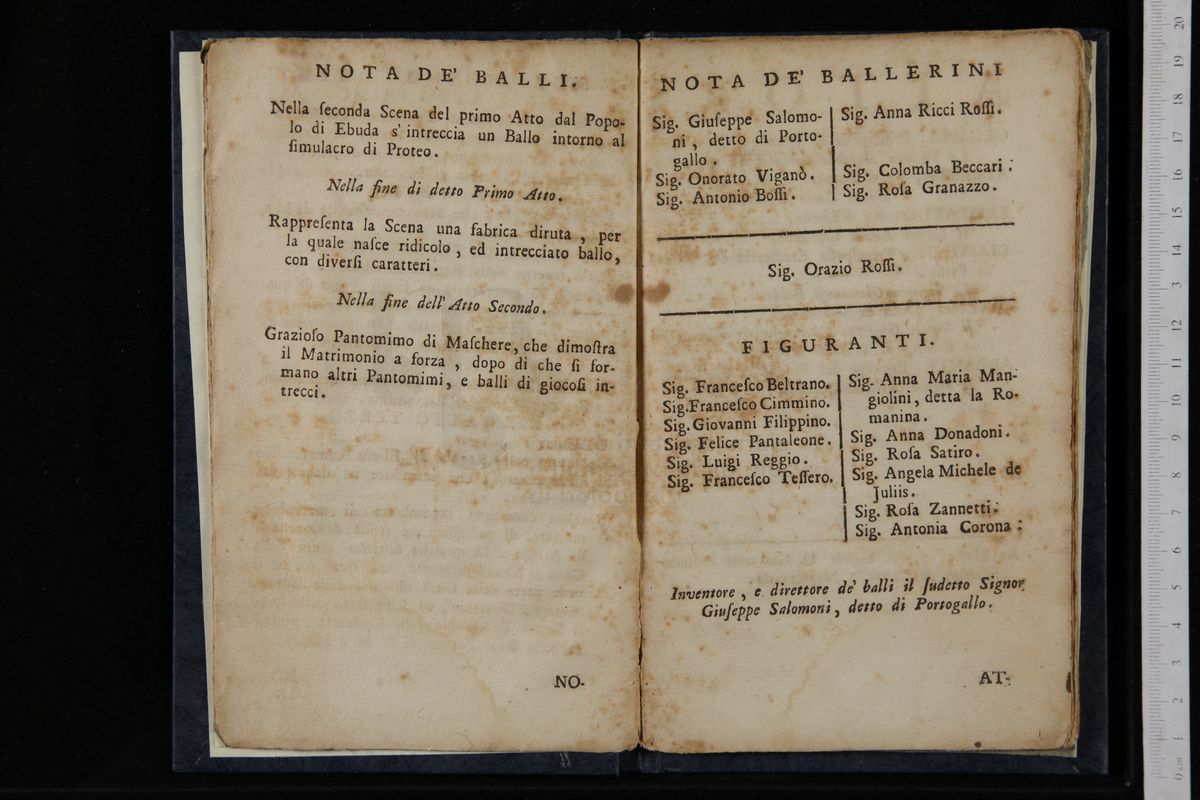 NOTA DE' BALLI.
Nella ſeconda Scena del primo Atto dal Popo-
lo di Ebuda s' intreccia un Ballo intorno al
ſimulacro di Proteo.
Nella fine di detto Primo Atto.
Rappreſenta la Scena una fabrica diruta, per
la quale naſce ridicolo, ed intrecciato ballo,
con diverſi caratteri.
Nella fine dell' Atto Secondo.
Grazioſo Pantomimo di Maſchere, che dimoſtra
il Matrimonio a forza, dopo di che ſi for-
mano altri Pantomimi, e balli di giocoſi in-
trecci.
NO-
NOTA DE' BALLERINI
Sig. Giuſeppe Salomo-
ni, detto di Porto-
gallo.
Sig. Onorato Viganò.
Sig. Antonio Boſſi.
Sig. Anna Ricci Roſſi.
Sig. Colomba Beccari.
Sig. Roſa Granazzo.
Sig. Orazio Roſſi.
FIGURANTI.
Sig. Franceſco Beltrano.
Sig. Franceſco Cimmino.
Sig. Giovanni Filippino.
Sig. Felice Pantaleone.
Sig. Luigi Reggio.
Sig. Franceſco Teſſero.
Sig. Anna Maria Man-
giolini, detta la Ro-
manina.
Sig. Anna Donadoni.
Sig. Roſa Satiro.
Sig. Angela Michele de
Juliis.
Sig. Roſa Zannetti.
Sig. Antonia Corona.
Inventore, e direttore de' balli il ſudetto Signor
Giuſeppe Salomoni, detto di Portogallo.
AT-
0 cm 1 2 3 4 5 6 7 8 9 10 11 12 13 14 15 16 17 18 19 20